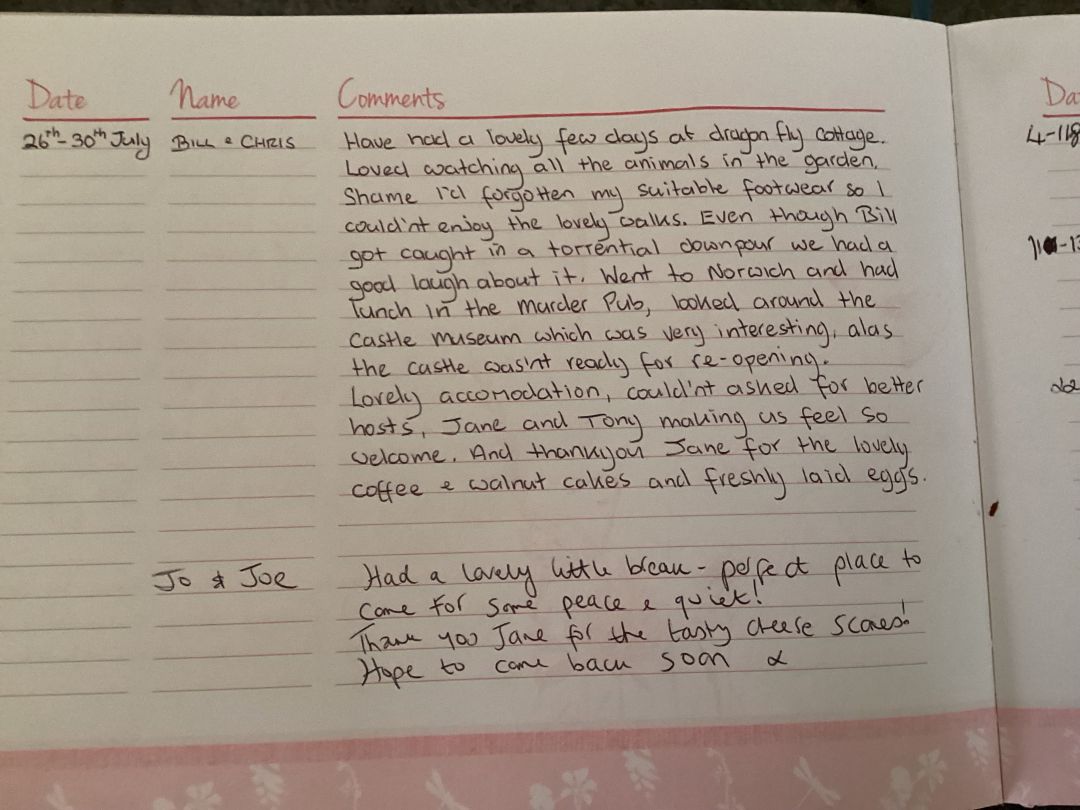 Date Name Comments
26th - 30th July BILL & CHRIS Have had a lovely few days at dragon fly cottage.
Loved watching all the animals in the garden.
Shame I'd forgotten my suitable footwear so I
could'nt enjoy the lovely walks. Even though Bill
got caught in a torrential downpour we had a
good laugh about it. Went to Norwich and had
lunch in the Murder Pub, looked around the
Castle Museum which was very interesting, alas
the castle was'nt ready for re-opening.
Lovely accomodation, could'nt asked for better
hosts, Jane and Tony making us feel so
welcome. And thankyou Jane for the lovely
coffee & walnut cakes and freshly laid eggs.
Jo & Joe Had a lovely little break - perfect place to
come for some peace & quiet!
Thank you Jane for the tasty cheese scones!
Hope to come back soon x
Da